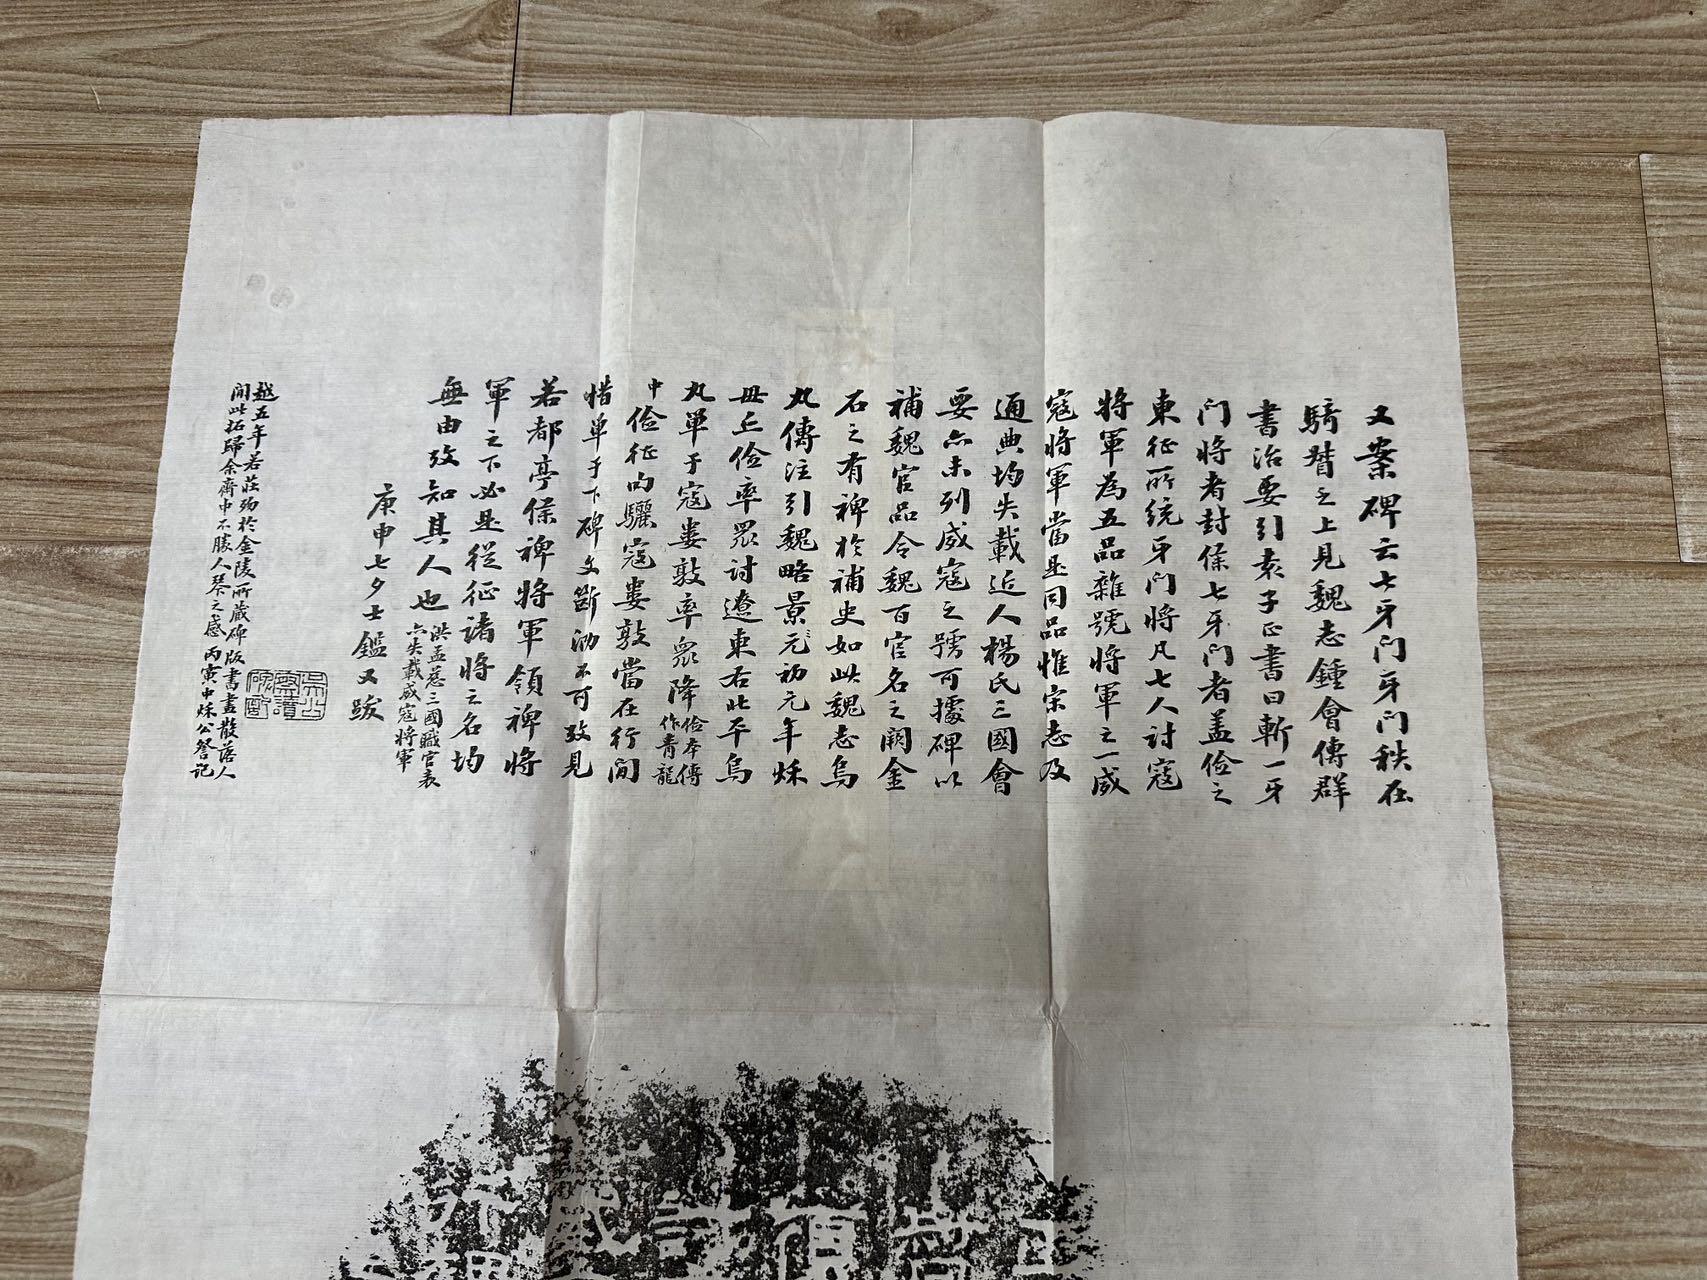 又案碑云七牙門牙門秩在
騎督之上見魏志鍾會傳群
書治要引袁子正書曰斬一牙
门將者封侯七牙门者盖儉之
東征所統牙门將凡七人討寇
將軍為五品雜號將軍之一威
寇將軍當是同品惟宋志及
通典均失載近人楊氏三國會
要亦未列威寇之號可據碑以
補魏官品令魏百官名之闕金
石之有裨於補史如此魏志烏
丸傳注引魏略景元初元年烁
毌丘儉率眾討遼東右北平烏
丸單于寇婁敦率眾降儉本傳作青龍
中儉征句驪寇婁敦當在行間
惜單于下碑文斷泐不可攷見
若都亭侯裨將軍領裨將
軍之下必是從征諸將之名均
無由攷知其人也洪孟慈三國職官表亦失載威寇將軍
庚申七夕士鑑又跋
越五年若莊殁於金陵所藏碑版書畫散落人
間此拓歸余齋中不勝人琴之感丙寅中烁公詧記